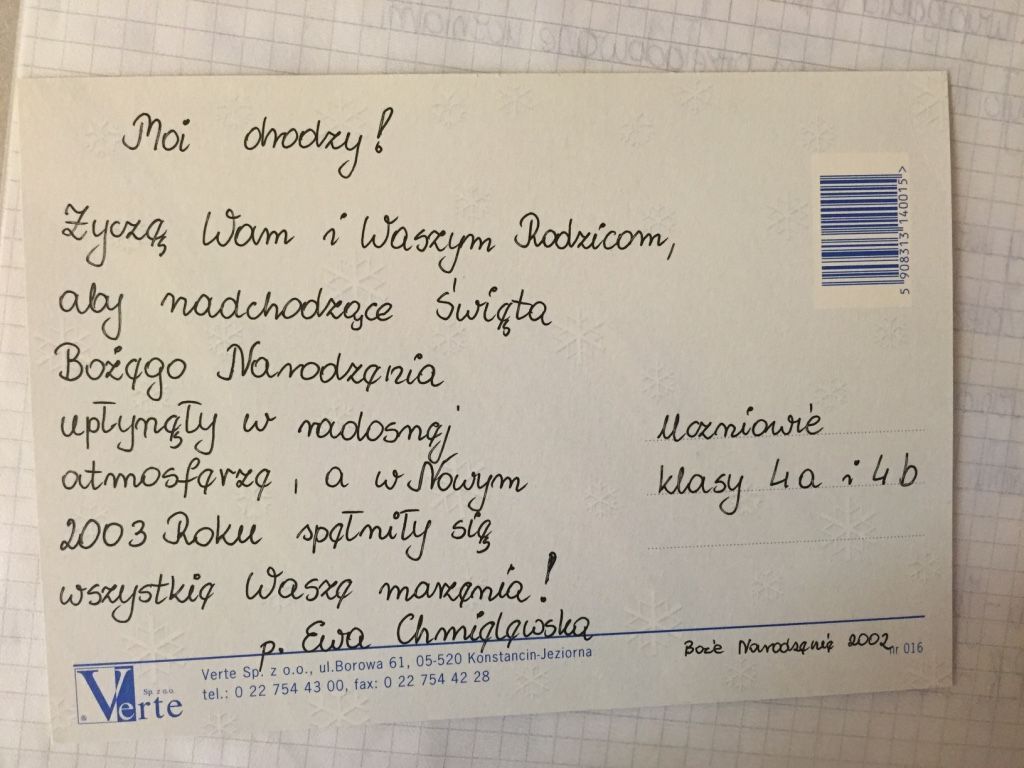 Moi drodzy!
Życzę Wam i Waszym Rodzicom,
aby nadchodzące święta
Bożego Narodzenia
upłynęły w radosnej
atmosferze, a w Nowym
2003 Roku spełniły się
wszystkie Wasze marzenia!
p. Ewa Chmielewska
Uczniowie
klasy 4a i 4b
Boże Narodzenie 2002
nr 016
5 908313 140015 >
Verte Sp. z o.o.
Verte Sp. z o.o., ul.Borowa 61, 05-520 Konstancin-Jeziorna
tel.: 0 22 754 43 00, fax: 0 22 754 42 28